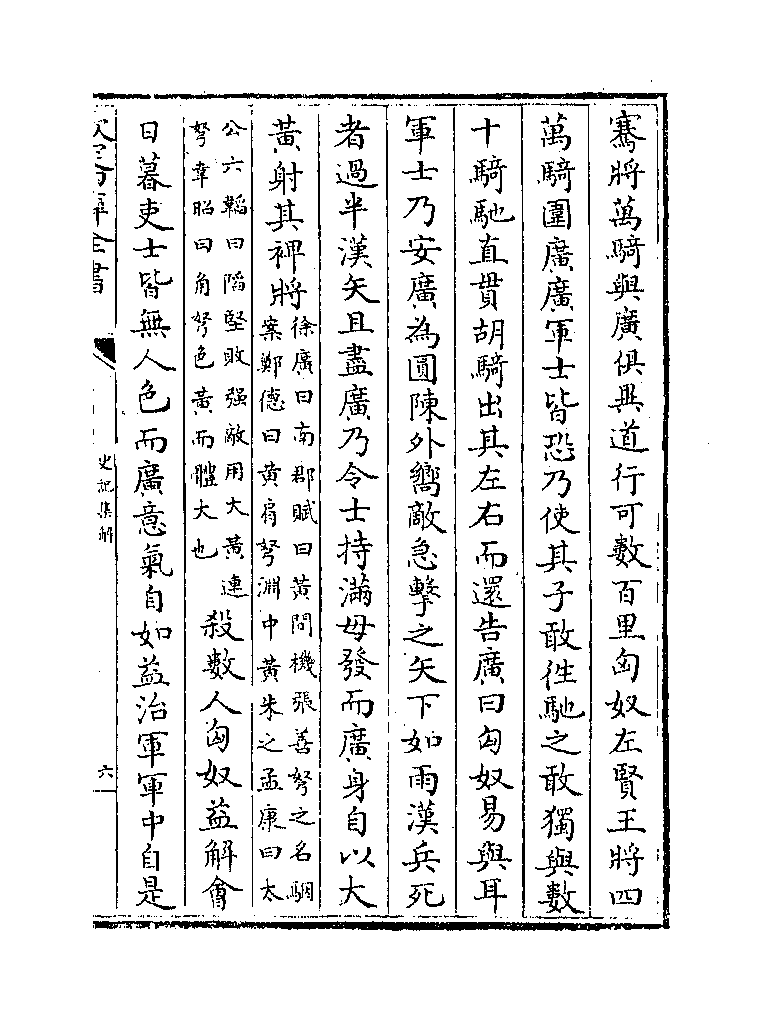 騫將萬騎與廣俱異道行可數百里匈奴左賢王將四
萬騎圍廣廣軍士皆恐乃使其子敢徃馳之敢獨與數
十騎馳直貫胡騎出其左右而還告廣曰匈奴易與耳
軍士乃安廣為圓陳外嚮敵急擊之矢下如雨漢兵死
者過半漢矢且盡廣乃令士持滿毋發而廣身自以大
黃射其裨將
徐廣曰南郡賦曰黃間機張善弩之名駰
案鄭德曰黃肩弩淵中黃朱之孟康曰太
公六韜曰陷堅敗强敵用大黃連
弩韋昭曰角弩色黃而體大也
殺數人匈奴益解會
日暮吏士皆無人色而廣意氣自如益治軍軍中自是
史記集解
六